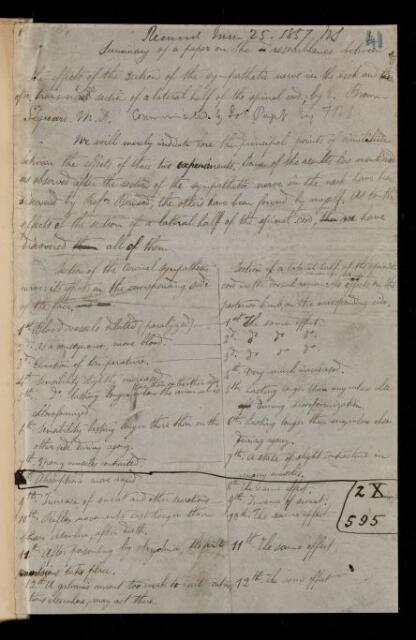 Received June 25. 1857. WS
41
Summary of a paper on the resemblance between
the effects of the section of the sympathetic nerve in the neck and
of a transversal section of a lateral half of the spinal cord; by E. Brown-
Séquard, M.D. Communicated by Paget Esq FRS
We will merely indicate here the principal points of similitude
between the effects of these two experiments. Some of the results
as observed after the section of the sympathetic nerve in the neck have been
discovered by Profr Bernard, the others have been found by myself. As to the
effects of the section of a lateral half of the spinal cord, we have
discovered all of them
Section of the cervical sympathetic
nerve: effects on the corresponding side
of the face
1st Blood vessels dilated (paralyzed)
2d As a consequence, more blood.
3d Elevation of temperature.
4th Sensibility slightly increased
5th do lasting longer than on the other side when the animal is
chloroformized.
6th Sensibility lasting longer there than on the
other side during agony.
7th Many muscles contracted
8th Absorption more rapid
9th Increase of sweat and other secretions
10th Reflex movements last longer there
than elsewhere, after death.
11th After poisoning by strychnine,
convulsions
12th A galvanic current too weak to excite
elsewhere, may act there.
Section of a lateral half of the spinal
cord in the dorsal region: the effects on the
posterior limb, on the corresponding side.
1st The same effect.
2d. do do do.
3d. do do do.
4th Very much increased.
5th Lasting longer than anywhere else
during chloroformization
6th Lasting longer than anywhere else
during agony.
7th A state of slight contracture in
many muscles.
8th The same effect.
9th Increase of sweat.
10th The same effect
11th The same effect
12th The same effect
2 X
595